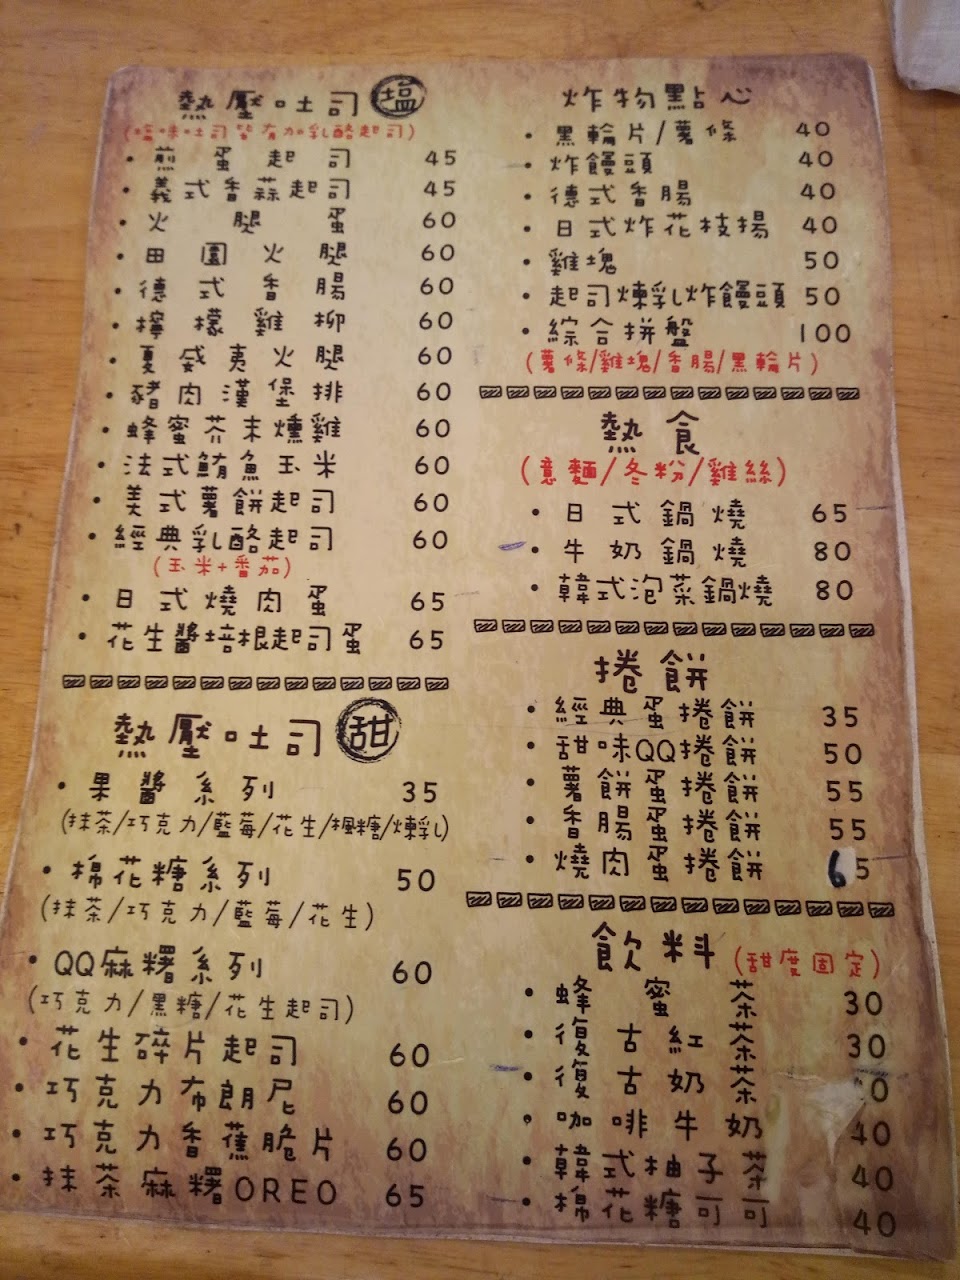 熱壓吐司 塩
(塩味吐司皆有加乳酪起司)
• 煎蛋起司 45
• 義式香蒜起司 45
• 火腿蛋 60
• 田園火腿 60
• 德式香腸 60
• 檸檬雞柳 60
• 夏威夷火腿 60
• 豬肉漢堡排 60
• 蜂蜜芥末燻雞 60
• 法式鮪魚玉米 60
• 美式薯餅起司 60
• 經典乳酪起司 60
(玉米+番茄)
• 日式燒肉蛋 65
• 花生醬培根起司蛋 65
熱壓吐司 甜
• 果醬系列 35
(抹茶/巧克力/藍莓/花生/楓糖/煉乳)
• 棉花糖系列 50
(抹茶/巧克力/藍莓/花生)
• QQ麻糬系列 60
(巧克力/黑糖/花生起司)
• 花生碎片起司 60
• 巧克力布朗尼 60
• 巧克力香蕉脆片 60
• 抹茶麻糬OREO 65
炸物點心
• 黑輪片/薯條 40
• 炸饅頭 40
• 德式香腸 40
• 日式炸花枝揚 40
• 雞塊 50
• 起司煉乳炸饅頭 50
• 綜合拼盤 100
(薯條/雞塊/香腸/黑輪片)
熱食
(意麵/冬粉/雞絲)
• 日式鍋燒 65
• 牛奶鍋燒 80
• 韓式泡菜鍋燒 80
捲餅
• 經典蛋捲餅 35
• 甜味QQ捲餅 50
• 薯餅蛋捲餅 55
• 香腸蛋捲餅 55
• 燒肉蛋捲餅 65
飲料 (甜度固定)
• 蜂蜜茶 30
• 復古紅茶 30
• 復古奶茶 0
• 咖啡牛奶 40
• 韓式柚子茶 40
• 棉花糖可可 40